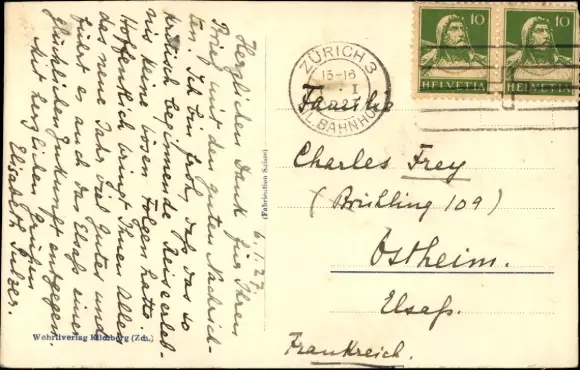 6.1.27.
Herzlichen Dank für Ihren
Brief mit den guten Nachrich-
ten. Ich bin froh, daß das so
kritisch beginnende Reiseerleb-
nis keine bösen Folgen hatte.
Hoffentlich bringt Ihnen Allen
das neue Jahr viel Gutes und
führt es auch das Elsaß einer
glücklichen Zukunft entgegen.
Mit herzlichen Grüßen
Elisabeth Sulzer.
Wehrliverlag Kilchberg (Zch.)
(Fabrication Suisse)
ZÜRICH 3
15-16
I
BAHNHOF
10 10
HELVETIA HELVETIA
Familie
Charles Frey
(Brühling 109)
Ostheim.
Elsaß.
Frankreich.